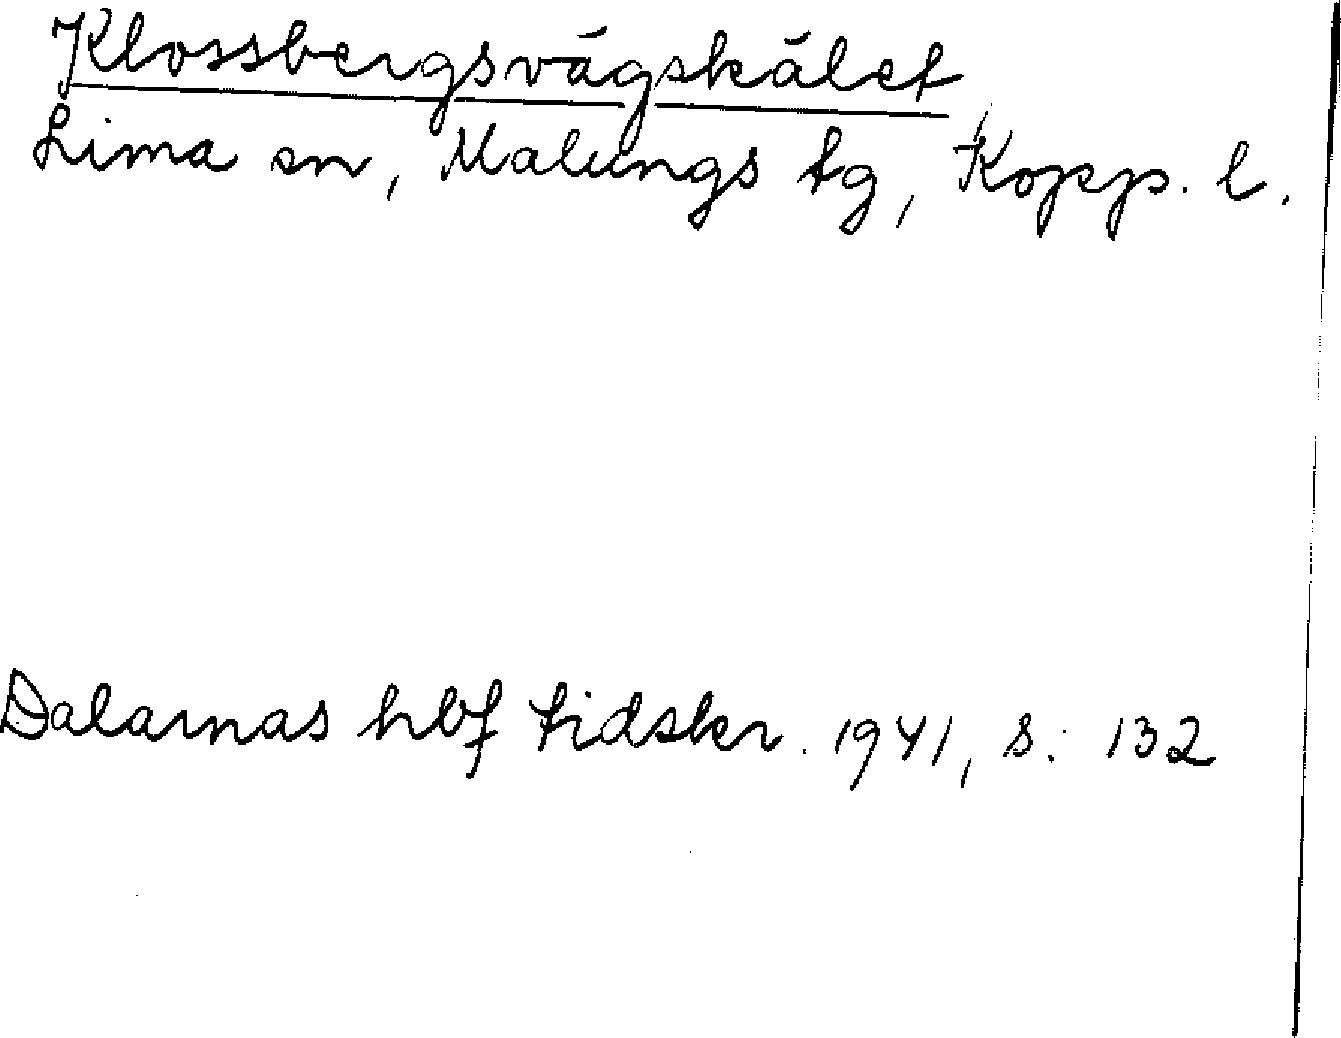 Klossbergsvägskälet
Lima sn, Malungs tg, Kopp. l.
Dalarnas hbf tidskr. 1941, s. 132